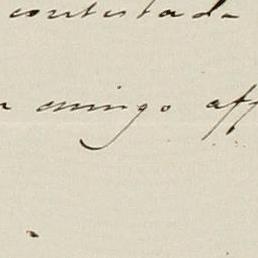 contestada
amigo aff